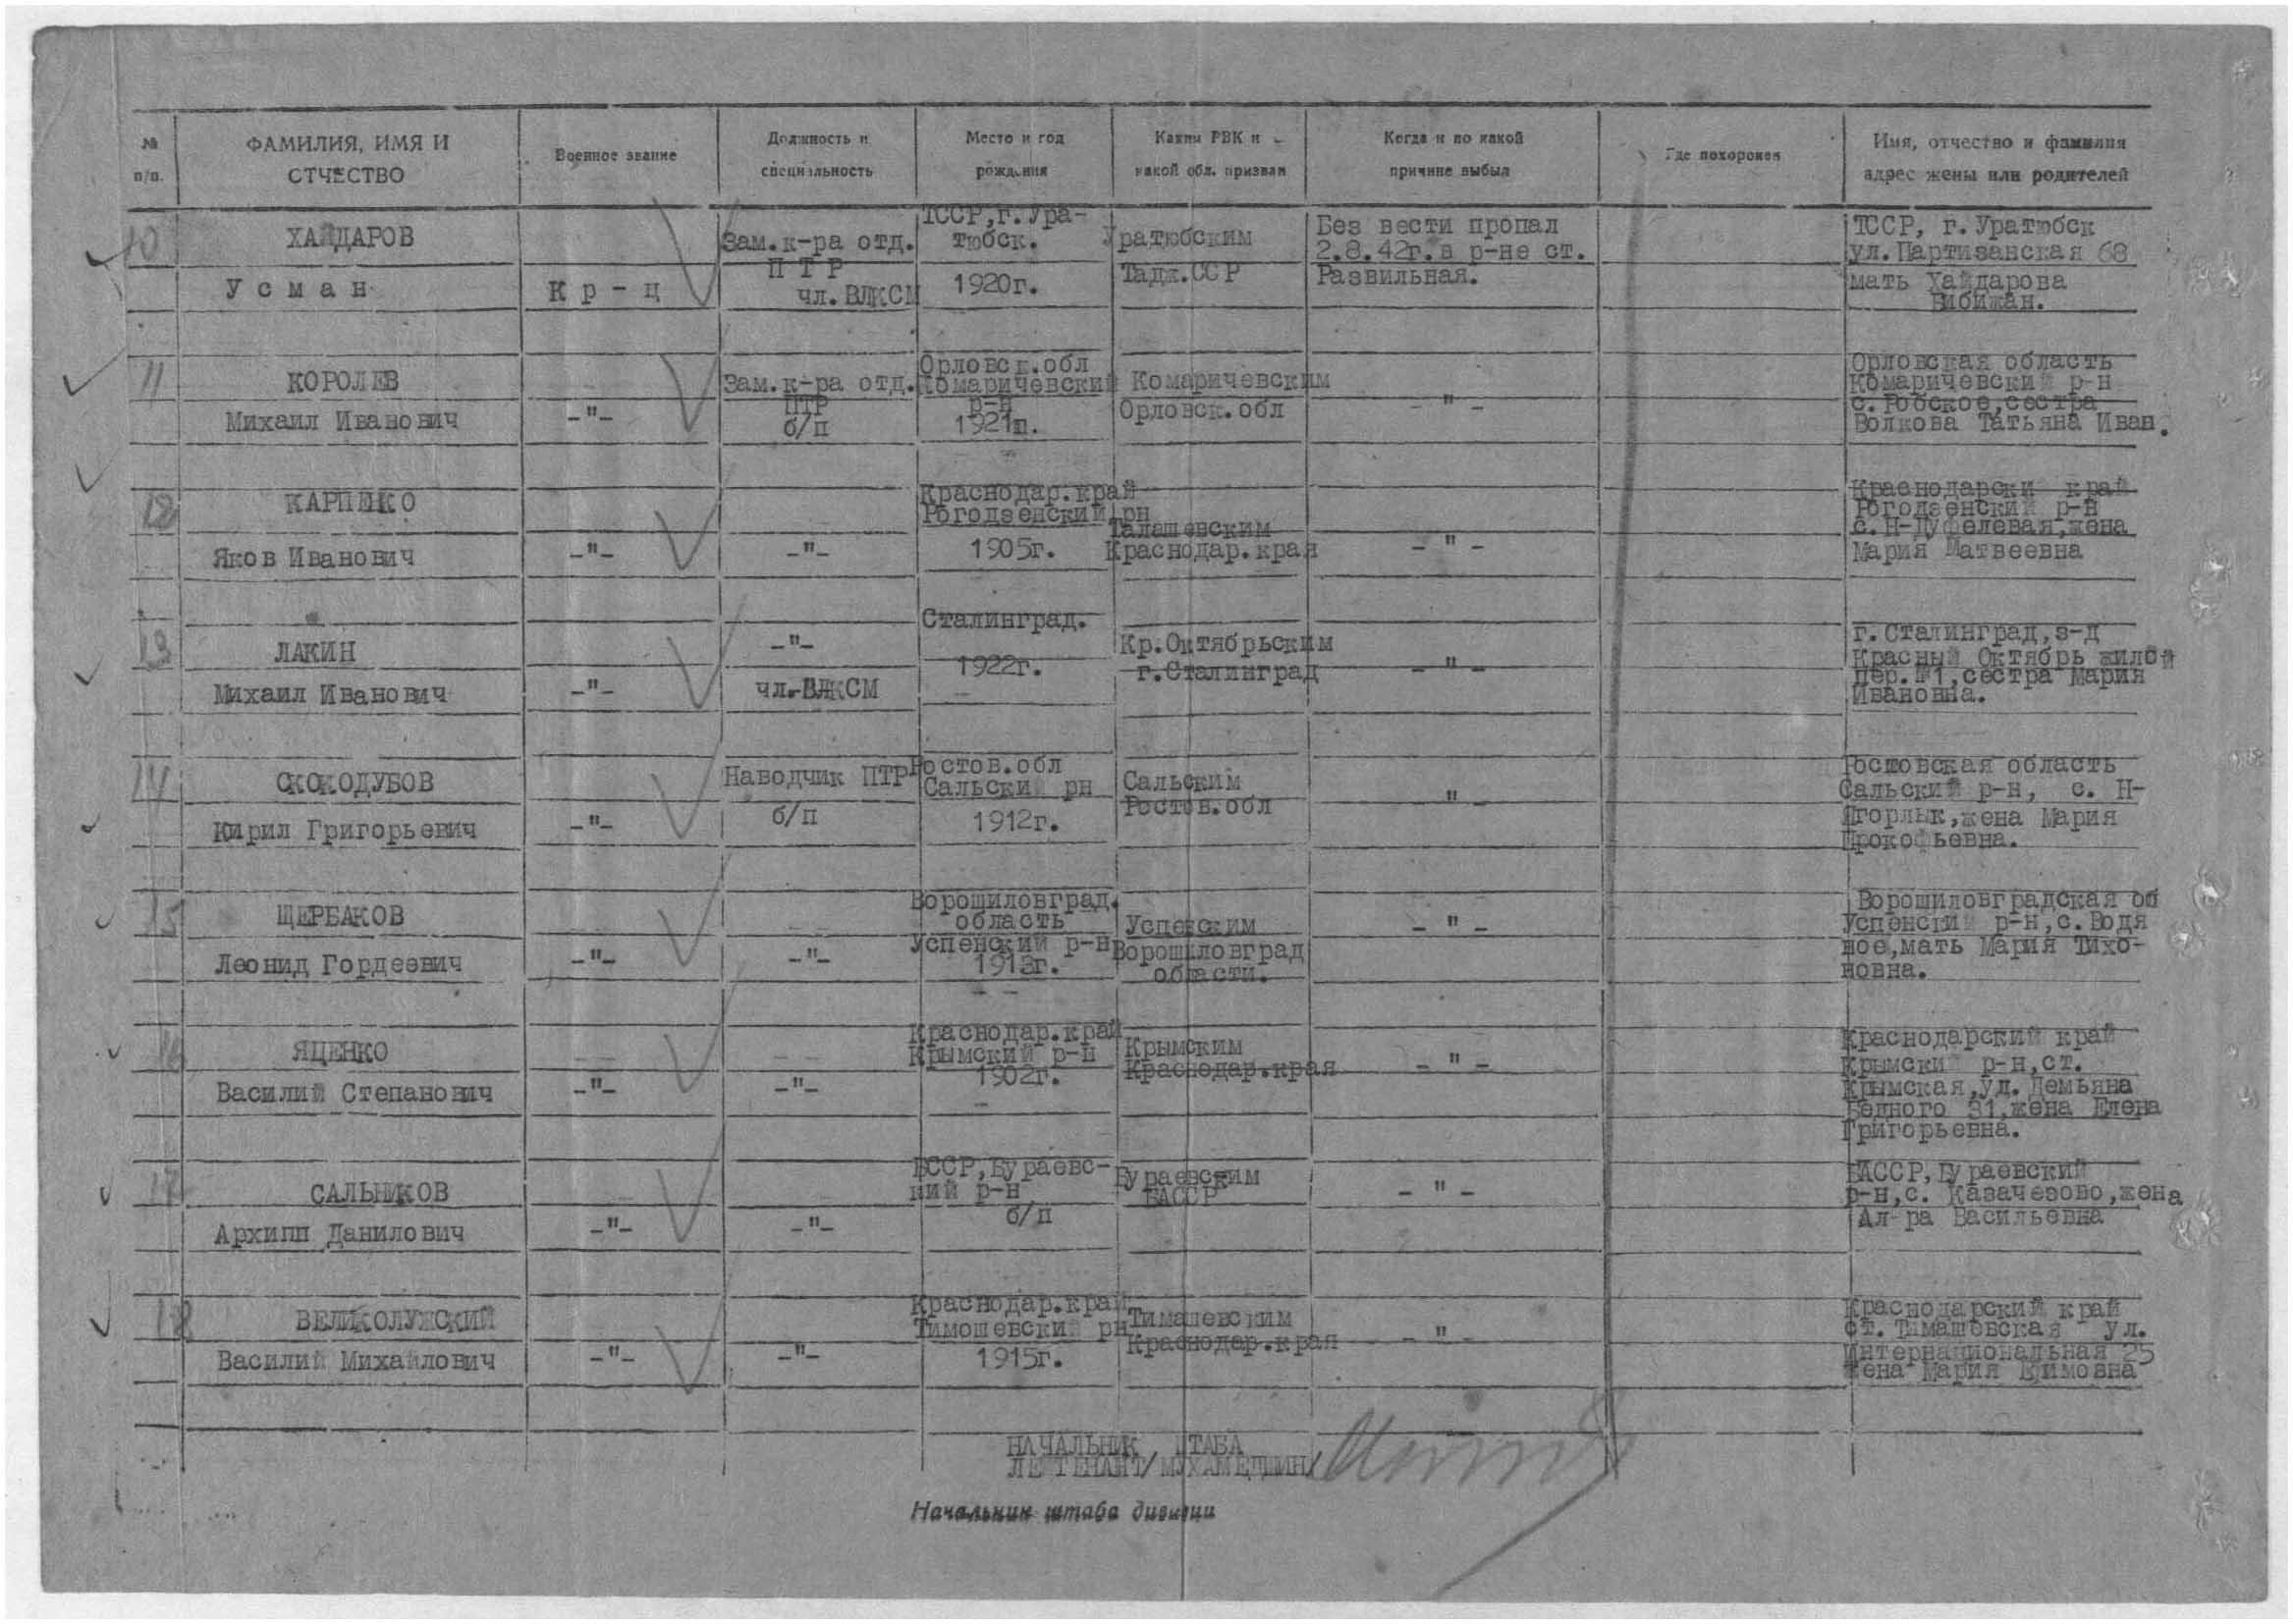 № п/п.
ФАМИЛИЯ, ИМЯ И ОТЧЕСТВО
Военное звание
Должность и специальность
Место и год рождения
Каким РВК и какой обл. призван
Когда и по какой причине выбыл
Где похоронен
Имя, отчество и фамилия адрес жены или родителей
10
ХАЙДАРОВ
Усман
Кр-ц
Зам.к-ра отд.
ПТР
чл.ВЛКСМ
ТССР,г.Ура-
тюбск.
1920г.
Уратюбским
Тадж.ССР
Без вести пропал
2.8.42г.в р-не ст.
Развильная.
ТССР, г.Уратюбск
ул.Партизанская 68
мать Хайдарова
Бибижан.
11
КОРОЛЕВ
Михаил Иванович
-"-
Зам.к-ра отд.
ПТР
б/п
Орловск.обл
Комаричевский
р-н
1921г.
Комаричевским
Орловск.обл
-"-
Орловская область
Комаричевский р-н
с. Робское,сестра
Волкова Татьяна Иван.
12
КАРПЕНКО
Яков Иванович
-"-
-"-
Краснодар.край
Рогодзенский рн
1905г.
Талашевским
Краснодар.края
-"-
Краснодарски край
Рогодзенский р-н
с. Н-Дуфелевая,жена
Мария Матвеевна
13
ЛАКИН
Михаил Иванович
-"-
-"-
чл.ВЛКСМ
Сталинград.
1922г.
Кр.Октябрьским
г.Сталинград
-"-
г.Сталинград,з-д
Красный Октябрь жилой
пер.№1,сестра Мария
Ивановна.
14
СКОКОДУБОВ
Кирил Григорьевич
-"-
Наводчик ПТР
б/п
Ростов.обл
Сальский рн
1912г.
Сальским
Ростов.обл
"-
Ростовская область
Сальский р-н, с. Н-
Ягорлык,жена Мария
Прокофьевна.
15
ЩЕРБАКОВ
Леонид Гордеевич
-"-
-"-
Ворошиловград.
область
Успенский р-н
1913г.
Успенским
Ворошиловград
области.
-"-
Ворошиловградская об
Успенский р-н,с.Водя
ное,мать Мария Тихо-
новна.
16
ЯЦЕНКО
Василий Степанович
-"-
-"-
Краснодар.край
Крымский р-н
1902г.
Крымским
Краснодар.края
-"-
Краснодарский край
Крымски р-н,ст.
Крымская,ул. Демьяна
Бедного 31,жена Елена
Григорьевна.
17
САЛЬНИКОВ
Архипп Данилович
-"-
-"-
БССР,Бураевс-
кий р-н
б/п
Бураевским
БАССР
-"-
БАССР,Бураевский
р-н,с. Казачезово,жена
Ал-ра Васильевна
18
ВЕЛИКОЛУЖСКИЙ
Василий Михайлович
-"-
-"-
Краснодар.край
Тимошевский рн
1915г.
Тимашевским
Краснодар.края
-"-
Краснодарский край
ст. Тимашевская ул.
Интернациональная 25
жена Мария Ефимовна
НАЧАЛЬНИК ШТАБА
ЛЕЙТЕНАНТ/МУХАМЕДШИН/
Начальник штаба дивизии